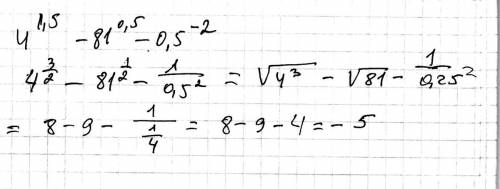 4^{1,5} - 81^{0,5} - 0,5^{-2}
4^{\frac{3}{2}} - 81^{\frac{1}{2}} - \frac{1}{0,5^2} = \sqrt{4^3} - \sqrt{81} - \frac{1}{0,25^2}
= 8 - 9 - \frac{1}{\frac{1}{4}} = 8 - 9 - 4 = - 5